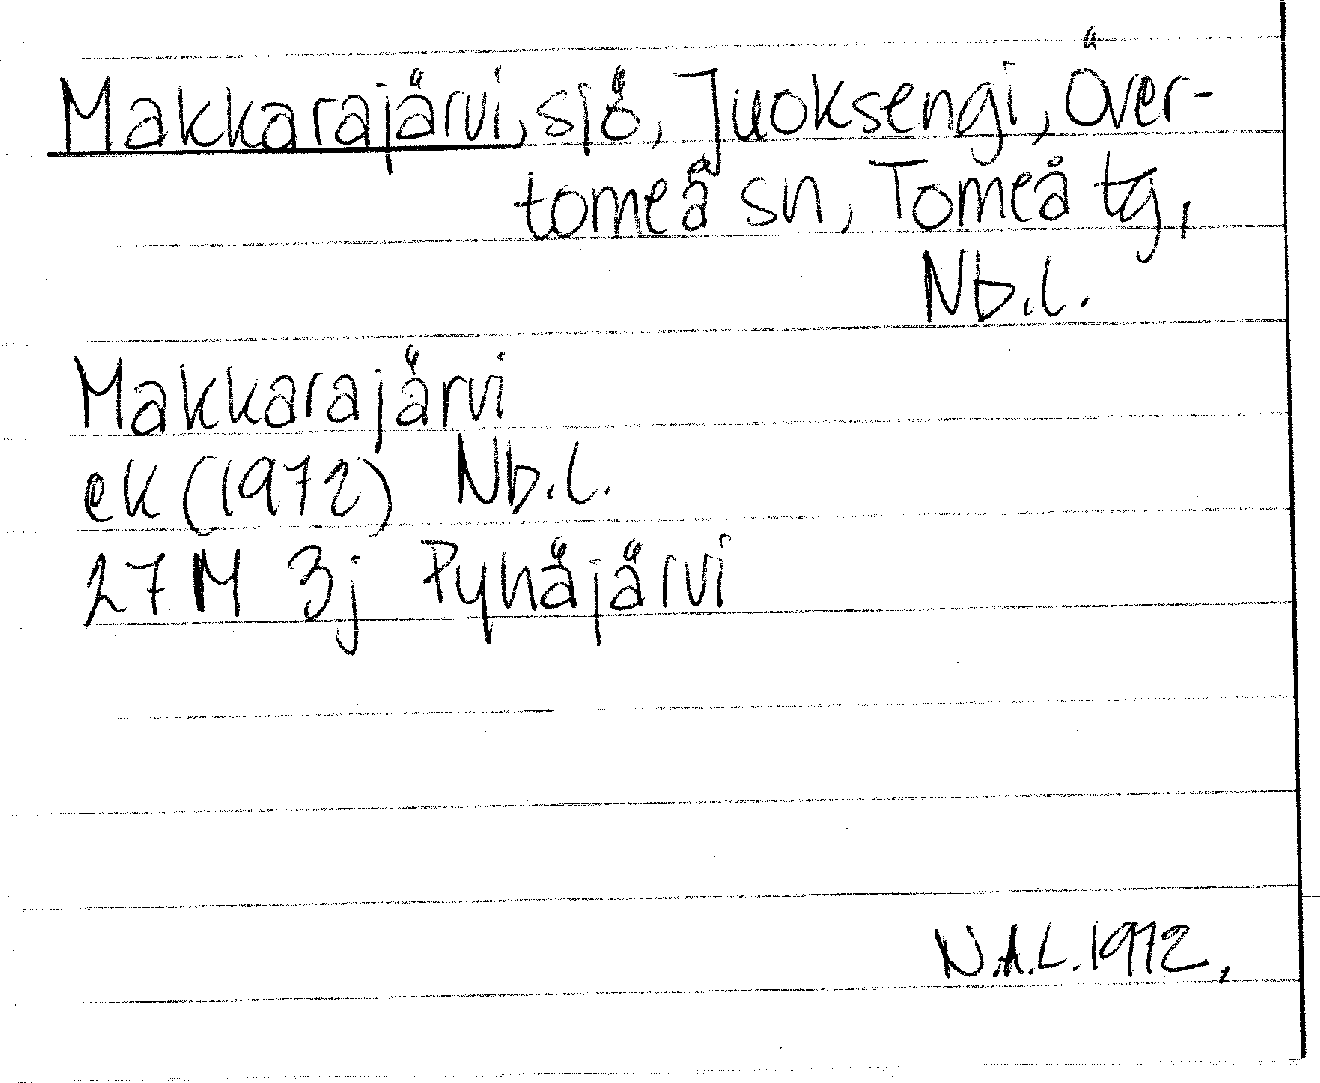 Makkarajärvi, sjö, Juoksengi, Över-
torneå sn, Torneå tg,
Nb.l.
Makkarajärvi
ek (1972) Nb.l.
27 M 3j Pyhäjärvi
N.A.L. 1972.